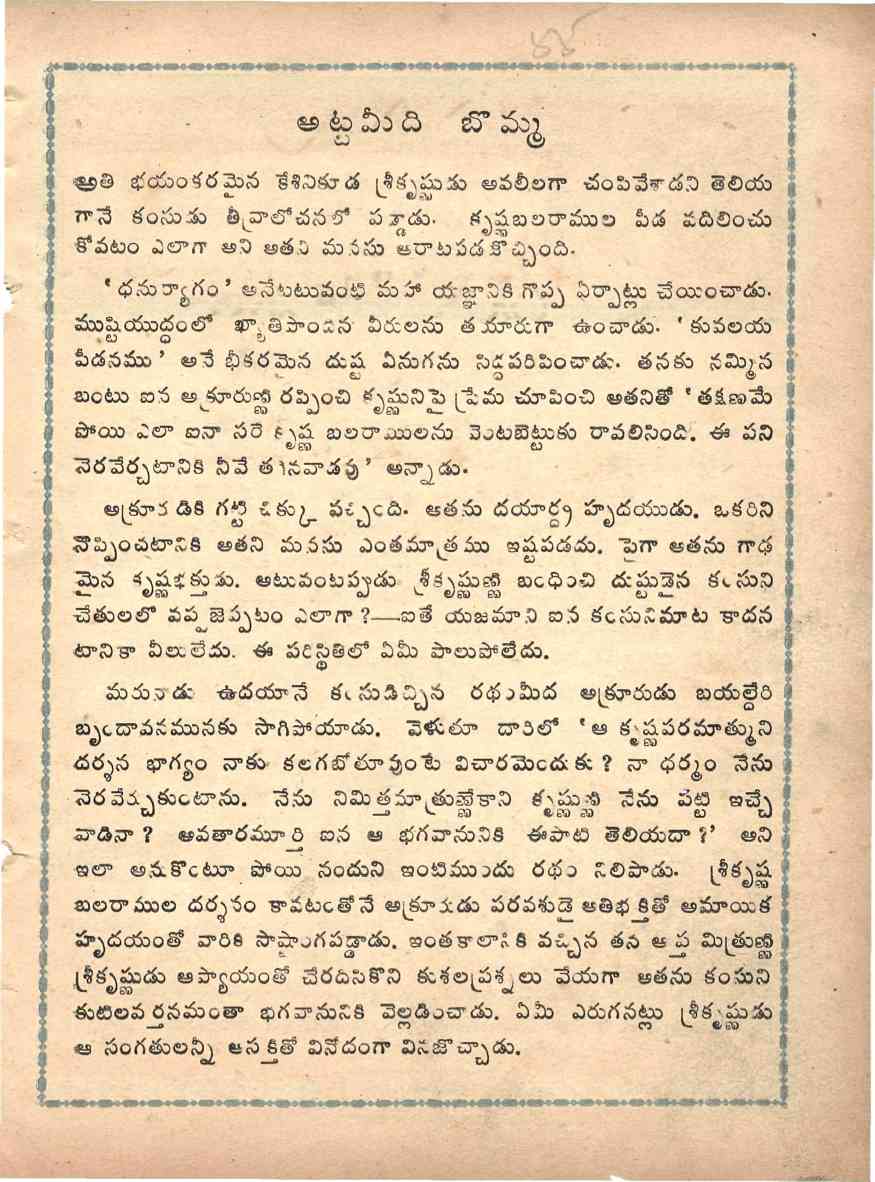 అట్టమీది బొమ్మ
అతి భయంకరమైన కేశినికూడ శ్రీకృష్ణుడు అవలీలగా చంపివేశాడని తెలియ
గానే కంసుడు తీవ్రాలోచనలో పడ్డాడు. కృష్ణబలరాముల పీడ వదిలించు
కోవటం ఎలాగా అని అతని మనసు ఆరాటపడజొచ్చింది.
‘ధనుర్యాగం’ అనేటటువంటి మహా యజ్ఞానికి గొప్ప ఏర్పాట్లు చేయించాడు.
ముష్టియుద్ధంలో ఖ్యాతిపొందిన వీరులను తయారుగా ఉంచాడు. ‘కువలయ
పీడనము’ అనే భీకరమైన దుష్ట ఏనుగను సిద్ధపరిపించాడు. తనకు నమ్మిన
బంటు ఐన అక్రూరుణ్ణి రప్పించి కృష్ణునిపై ప్రేమ చూపించి అతనితో ‘తక్షణమే
పోయి ఎలా ఐనా సరే కృష్ణ బలరాములను వెంటబెట్టుకు రావలిసింది. ఈ పని
నెరవేర్చటానికి నీవే తగినవాడవు’ అన్నాడు.
అక్రూరుడికి గట్టి చిక్కు వచ్చింది. ఆతను దయార్ద్ర హృదయుడు. ఒకరిని
నొప్పించటానికి అతని మనసు ఎంతమాత్రము ఇష్టపడదు. పైగా ఆతను గాఢ
మైన కృష్ణభక్తుడు. అటువంటప్పుడు శ్రీకృష్ణుణ్ణి బంధించి దుష్టుడైన కంసుని
చేతులలో వప్పజెప్పటం ఎలాగా?—ఐతే యజమాని ఐన కంసునిమాట కాదన
టానికా వీలులేదు. ఈ పరిస్థితిలో ఏమీ పాలుపోలేదు.
మరునాడు ఉదయానే కంసుడిచ్చిన రథంమీద అక్రూరుడు బయల్దేరి
బృందావనమునకు సాగిపోయాడు. వెళుతూ దారిలో ‘ఆ కృష్ణపరమాత్ముని
దర్శన భాగ్యం నాకు కలగబోతూవుంటే విచారమెందుకు? నా ధర్మం నేను
నెరవేర్చుకుంటాను. నేను నిమిత్తమాత్రుణ్ణేకాని కృష్ణుణ్ణి నేను పట్టి ఇచ్చే
వాడినా? అవతారమూర్తి ఐన ఆ భగవానునికి ఈపాటి తెలియదా?’ అని
ఇలా అనుకొంటూ పోయి నందుని ఇంటిముందు రథం నిలిపాడు. శ్రీకృష్ణ
బలరాముల దర్శనం కావటంతోనే అక్రూరుడు పరవశుడై అతిభక్తితో అమాయిక
హృదయంతో వారికి సాష్టాంగపడ్డాడు. ఇంతకాలానికి వచ్చిన తన ఆప్త మిత్రుణ్ణి
శ్రీకృష్ణుడు ఆప్యాయంతో చేరదిసికొని కుశలప్రశ్నలు వేయగా ఆతను కంసుని
కుటిలవర్తనమంతా భగవానునికి వెల్లడించాడు. ఏమీ ఎరుగనట్లు శ్రీకృష్ణుడు
ఆ సంగతులన్నీ ఆసక్తితో వినోదంగా వినజొచ్చాడు.